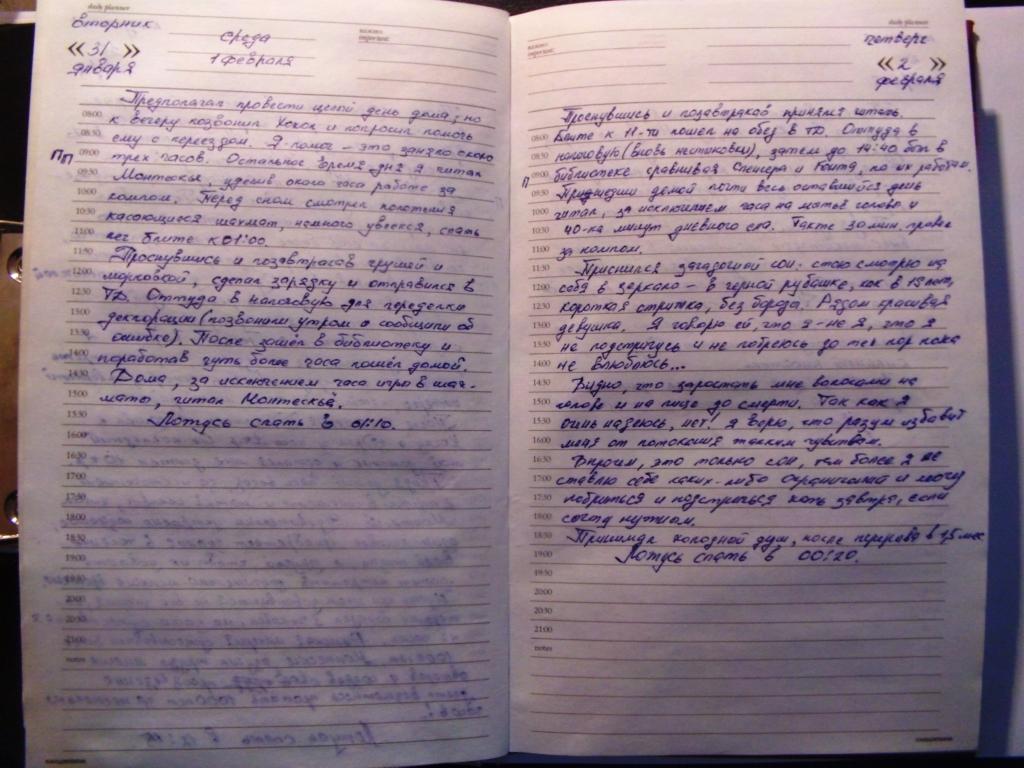 daily planner
вторник
« 31 »
января
среда
1 февраля
важно
important
08:00
08:30
09:00
09:30
10:00
10:30
11:00
11:30
12:00
12:30
13:00
13:30
14:00
14:30
15:00
15:30
16:00
16:30
17:00
17:30
18:00
18:30
19:00
19:30
20:00
20:30
21:00
notes
Предполагал провести целый день дома, но
к вечеру позвонил и попросил помочь
ему с переездом. Я помог – это заняло около
ПП
трех часов. Остальное время дня я читал
Монтескье, уделив около часа работе за
компом. Перед сном смотрел
касающиеся шахмат, немного увлекся, спать
лег ближе к 01:00.
Проснувшись и позавтракав грушей и
морковкой, сделал зарядку и отправился в
ТД. Оттуда в налоговую для переделки
декларации (позвонили утром и сообщили об
ошибке). После зашёл в библиотеку и
поработав чуть более часа пошёл домой.
Дома, за исключением часа игры в шах-
маты, читал Монтескьё.
Ложусь спать в 01:10.
daily planner
важно
important
четверг
« 2 »
февраля
08:00
08:30
09:00
09:30
10:00
10:30
11:00
11:30
12:00
12:30
13:00
13:30
14:00
14:30
15:00
15:30
16:00
16:30
17:00
17:30
18:00
18:30
19:00
19:30
20:00
20:30
21:00
notes
Проснувшись и позавтракав принялся читать.
Ближе к 11-ти пошел на обед в ТД. Оттуда в
налоговую (вновь нестыковки), затем до 14:40 был в
библиотеке сравнивая Спенсера и Конта, по их работам.
П
Пришедши домой почти весь оставшийся день
читал, за исключением часа на мытьё головы и
40-ка минут дневного сна. Также 30 мин. провел
за компом.
Приснился загадочный сон: стою смотрю на
себя в зеркало – в черной рубашке, как в 19 лет,
короткая стрижка, без бороды. Рядом красивая
девушка. Я говорю ей, что я – не я, что я
не подстригусь и не побреюсь до тех пор пока
не влюблюсь...
Видно, что зарастать мне волосами на
голове и на лице до смерти. Так как я
очень надеюсь, нет! я верю, что разум избавит
меня от потакания таким чувствам.
Впрочем, это только сон, тем более я не
ставлю себе каких-либо ограничений и могу
побриться и подстричься хоть завтра, если
сочту нужным.
Принимал холодный душ, после перерыва в 1,5 мес
Ложусь спать в 00:20.